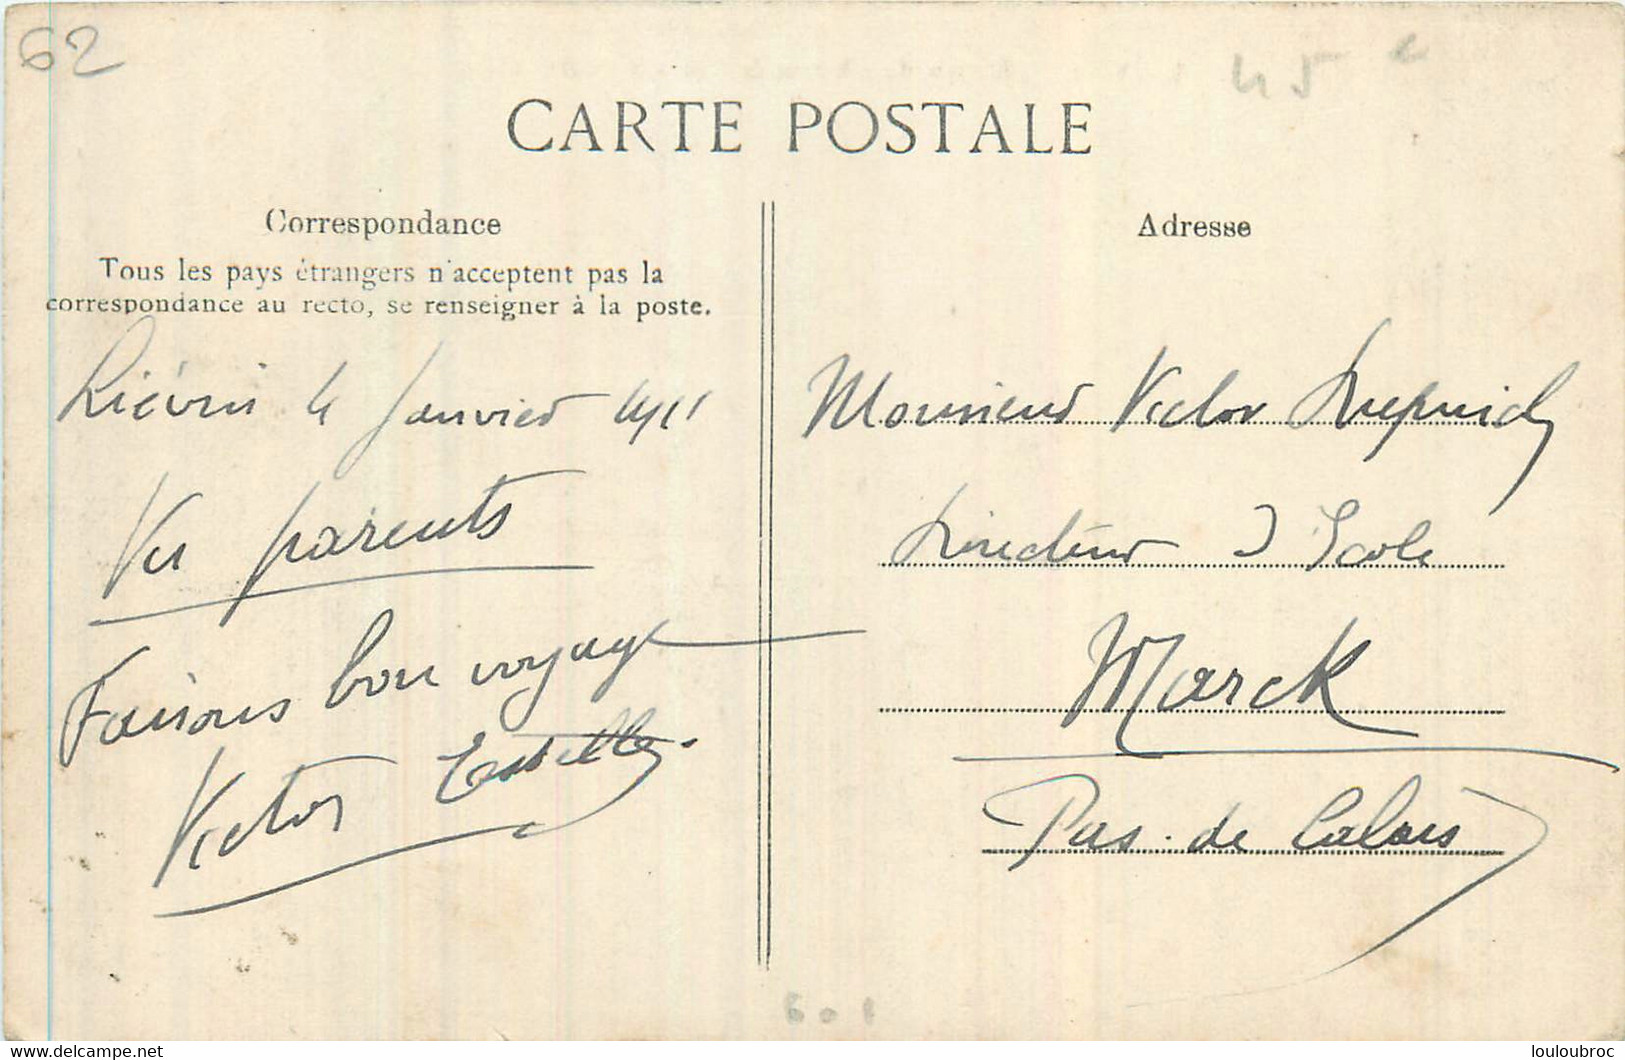 62
45 c
CARTE POSTALE
Correspondance
Tous les pays étrangers n'acceptent pas la
correspondance au recto, se renseigner à la poste.
Liévin 4 Janvier 1911
Vu parents
Faisons bon voyage
Victor
Adresse
Monsieur Victor
Directeur d Ecole
Marck
Pas-de Calais
601
delcampe.net
louloubroc